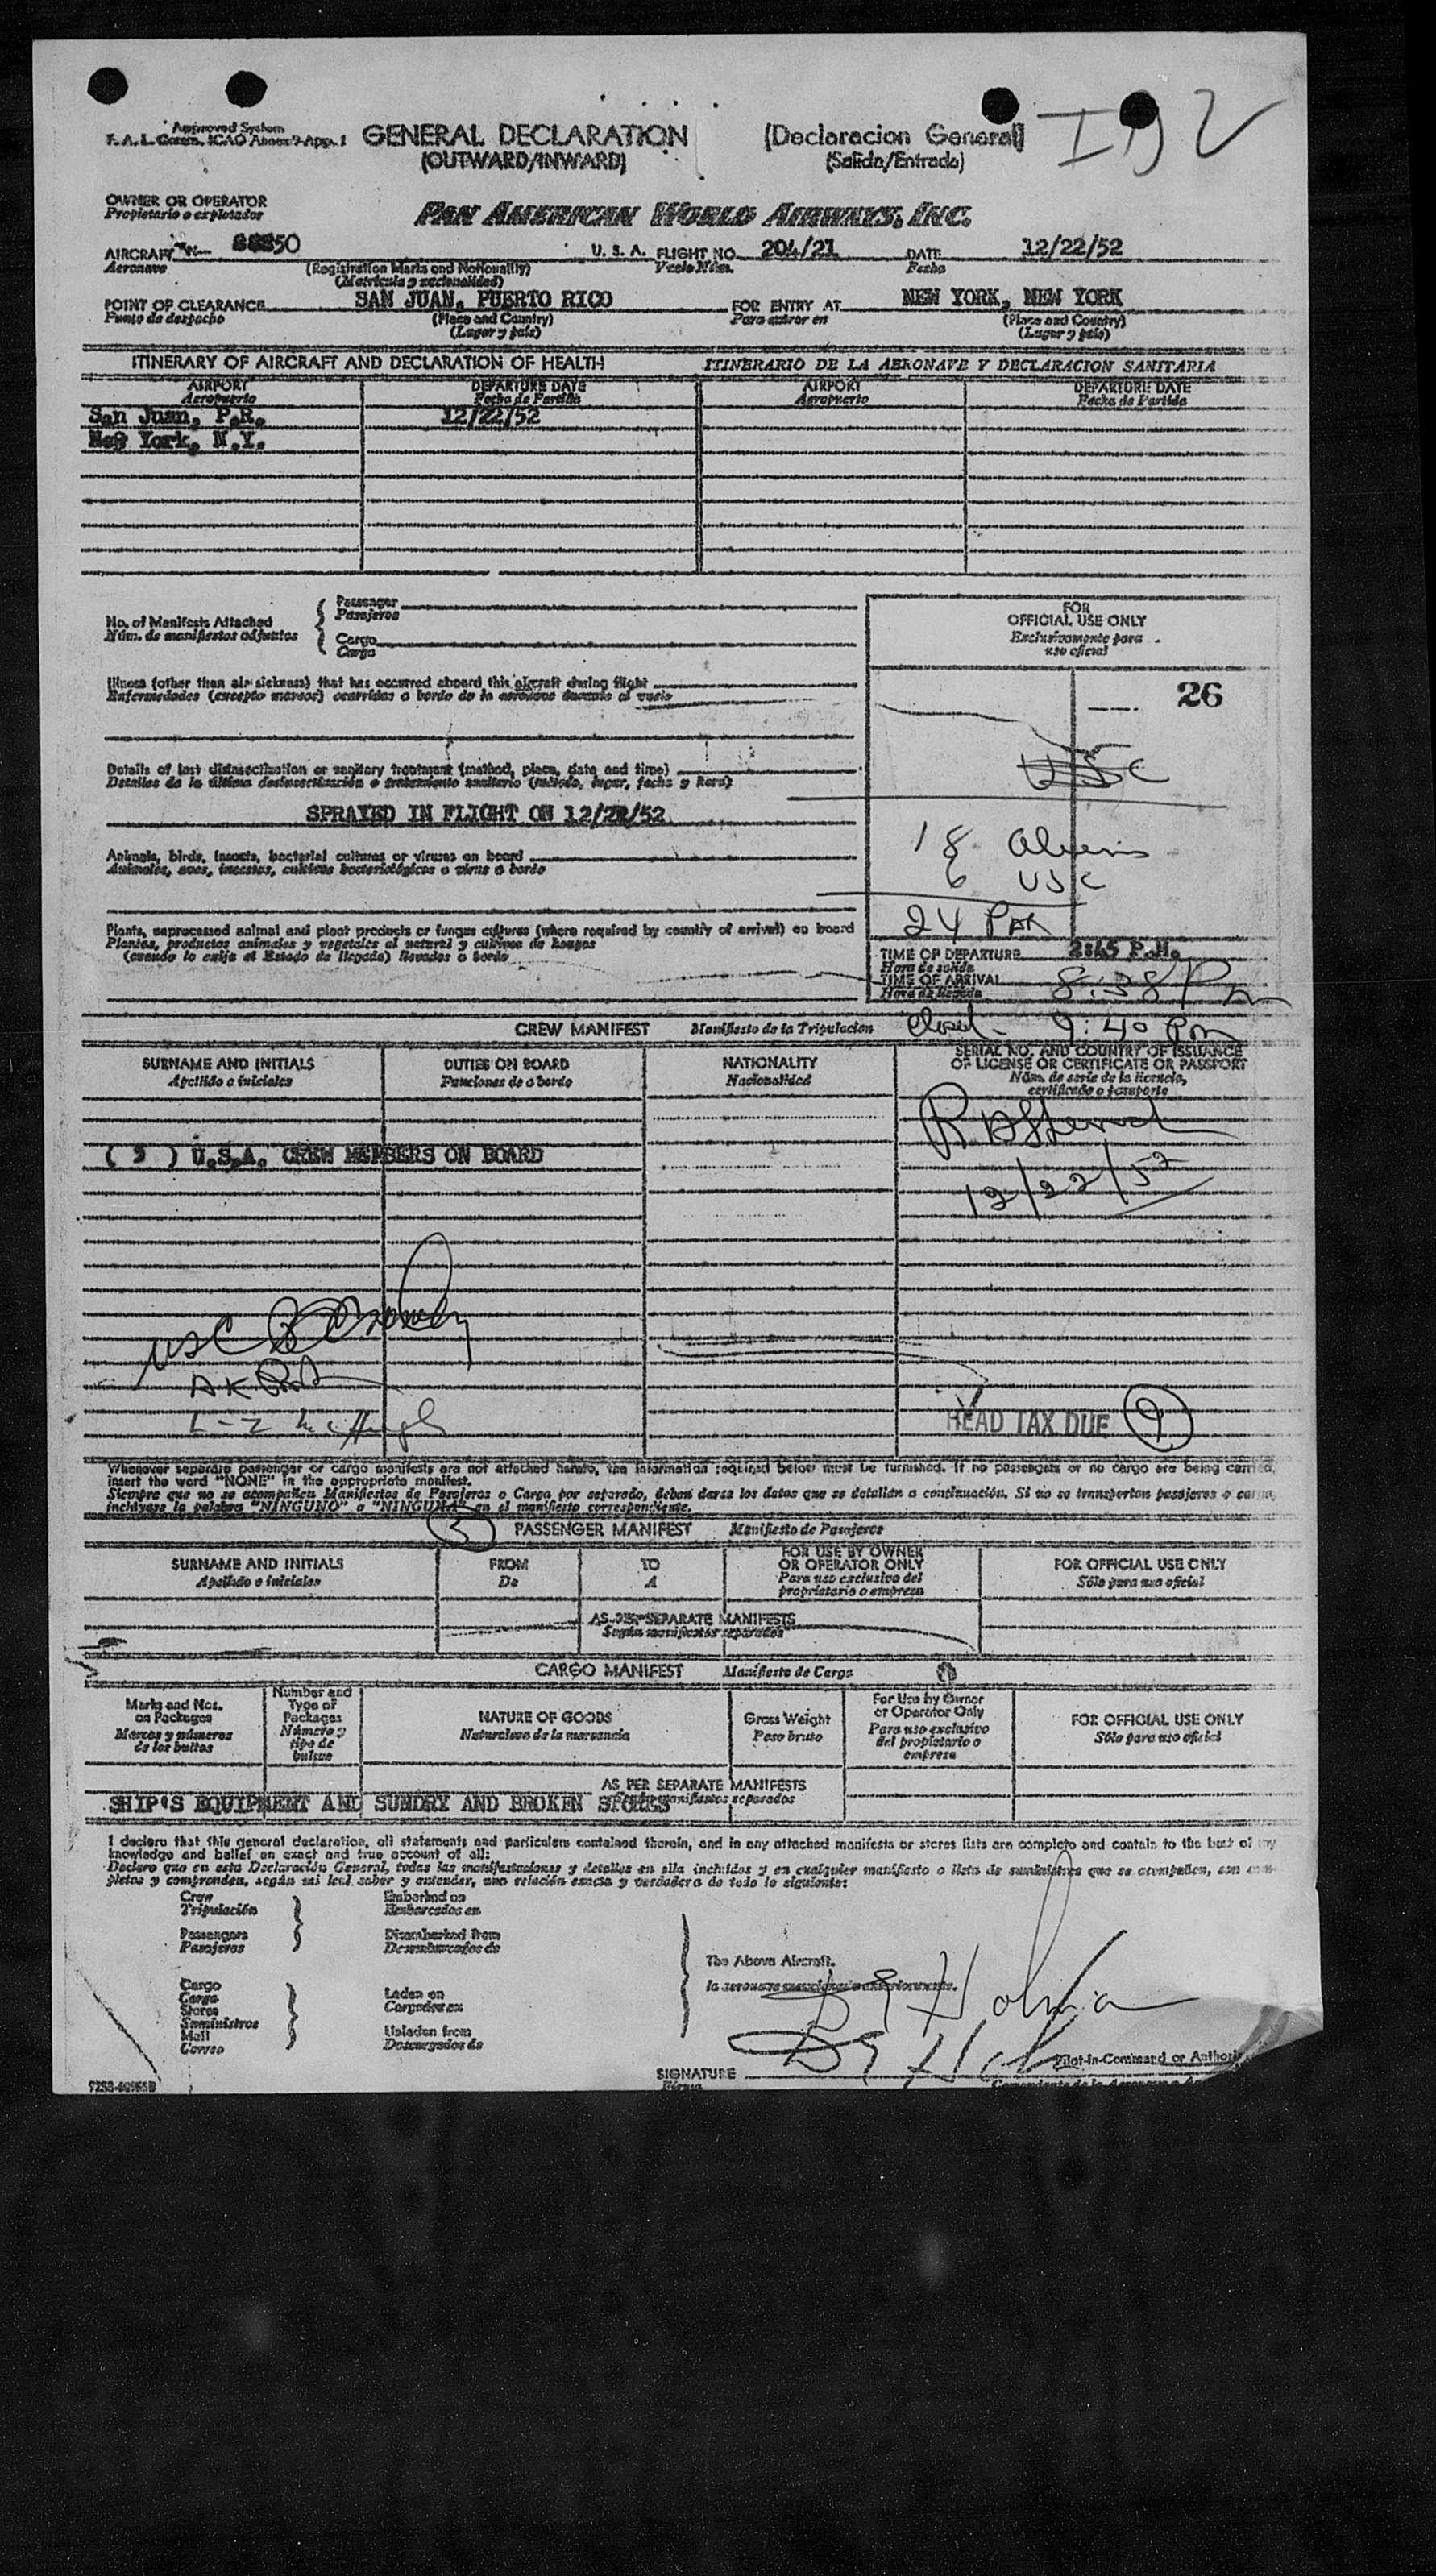 I 92
Approved System
F. A. L. Comm. ICAO Annex 9-App. 1
GENERAL DECLARATION (Declaracion General)
(OUTWARD/INWARD) (Salida/Entrada)
OWNER OR OPERATOR
Propietario o explotador
PAN AMERICAN WORLD AIRWAYS, INC.
AIRCRAFT N- 50 U. S. A. FLIGHT NO. 204/21 DATE 12/22/52
Aeronave (Registration Marks and Nationality) Vuelo Núm. Fecha
(Matrícula y nacionalidad)
POINT OF CLEARANCE SAN JUAN, PUERTO RICO FOR ENTRY AT NEW YORK, NEW YORK
Punto de despacho (Place and Country) Para entrar en (Place and Country)
(Lugar y país) (Lugar y país)
ITINERARY OF AIRCRAFT AND DECLARATION OF HEALTH ITINERARIO DE LA AERONAVE Y DECLARACION SANITARIA
AIRPORT DEPARTURE DATE AIRPORT DEPARTURE DATE
Aeropuerto Fecha de Partida Aeropuerto Fecha de Partida
San Juan, P.R. 12/22/52
New York, N.Y.
No. of Manifests Attached
Núm. de manifiestos adjuntos
Passenger
Pasajeros
Cargo
Carga
FOR
OFFICIAL USE ONLY
Exclusivamente para
uso oficial
Illness (other than air sickness) that has occurred aboard this aircraft during flight
Enfermedades (excepto mareos) ocurridas a bordo de la aeronave durante el vuelo
26
USC
Details of last disinsectization or sanitary treatment (method, place, date and time)
Detalles de la última desinsectización o tratamiento sanitario (método, lugar, fecha y hora)
SPRAYED IN FLIGHT ON 12/22/52
Animals, birds, insects, bacterial cultures or viruses on board
Animales, aves, insectos, cultivos bacteriológicos o virus a bordo
18 Aliens
6 USC
24 PAX
Plants, unprocessed animal and plant products or fungus cultures (where required by country of arrival) on board
Plantas, productos animales y vegetales al natural y cultivos de hongos
(cuando lo exija el Estado de llegada) llevados a bordo
TIME OF DEPARTURE P.M.
Hora de salida
TIME OF ARRIVAL 8:38 Pm
Hora de llegada
CREW MANIFEST Manifiesto de la Tripulacion Closed - 9:40 Pm
SURNAME AND INITIALS DUTIES ON BOARD NATIONALITY SERIAL NO. AND COUNTRY OF ISSUANCE
OF LICENSE OR CERTIFICATE OR PASSPORT
Apellido e iniciales Funciones de a bordo Nacionalidad Núm. de serie de la licencia,
certificado o pasaporte
( 5 ) U.S.A. CREW MEMBERS ON BOARD
12/22/52
USC
HEAD TAX DUE 9
Whenever separate passenger or cargo manifests are not attached hereto, the information required below must be furnished. If no passengers or no cargo are being carried,
insert the word "NONE" in the appropriate manifest.
Siempre que no se acompañen Manifiestos de Pasajeros o Carga por separado, deben darse los datos que se detallan a continuación. Si no se transportan pasajeros o carga,
inclúyase la palabra "NINGUNO" o "NINGUNA" en el manifiesto correspondiente.
5 PASSENGER MANIFEST Manifiesto de Pasajeros
SURNAME AND INITIALS FROM TO FOR USE BY OWNER
OR OPERATOR ONLY FOR OFFICIAL USE ONLY
Apellido e iniciales De A Para uso exclusivo del
propietario o empresa Sólo para uso oficial
AS PER SEPARATE MANIFESTS
Según manifiestos separados
CARGO MANIFEST Manifiesto de Carga
Marks and Nos.
on Packages
Marcas y números
de los bultos
Number and
Type of
Packages
Número y
tipo de
bultos
NATURE OF GOODS
Naturaleza de la mercancía
Gross Weight
Peso bruto
For Use by Owner
or Operator Only
Para uso exclusivo
del propietario o
empresa
FOR OFFICIAL USE ONLY
Sólo para uso oficial
AS PER SEPARATE MANIFESTS
SHIP'S EQUIPMENT AND SUNDRY AND BROKEN STORES manifiestos separados
I declare that this general declaration, all statements and particulars contained therein, and in any attached manifests or stores lists are complete and contain to the best of my
knowledge and belief an exact and true account of all:
Declaro que en esta Declaración General, todas las manifestaciones y detalles en ella incluidos y en cualquier manifiesto o lista de suministros que se acompañen, son com-
pletos y comprenden, según mi leal saber y entender, una relación exacta y verdadera de todo lo siguiente:
Crew
Tripulación
Passengers
Pasajeros
Embarked on
Embarcados en
Disembarked from
Desembarcados de
Cargo
Carga
Stores
Suministros
Mail
Correo
Laden on
Cargados en
Unladen from
Descargados de
The Above Aircraft.
la aeronave mencionada anteriormente.
SIGNATURE
Firma
Pilot-in-Command or Authoriz